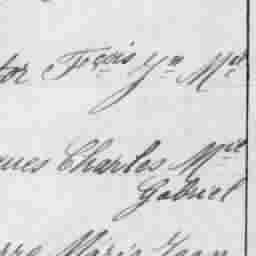 tor Fçois Jn Mel
ques Charles Mce
Gabriel
erre Marie Jean